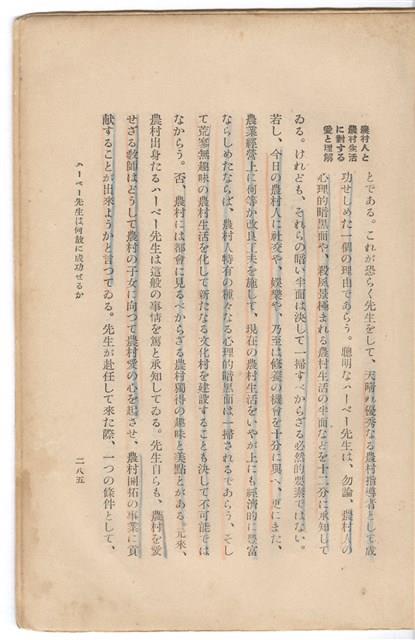 農村人と
農村生活
に對する
愛と理解
とである。これが恐らく先生をして、天晴れ優秀なる農村指導者として成
功せしめた一個の理由であらう。聰明なハーベー先生は、勿論、農村人の
心理的暗黑面や、殺風景極まれる農村生活の半面などを十二分に承知して
ゐる。けれども、それらの暗い半面は決して一掃すべからざる必然的要素ではない。
若し、今日の農村人に社交や、娯樂や、乃至は修養の機會を十分に與へ、更にまた、
農業經營上に何等か改良工夫を施して、現在の農村生活をいやが上にも經濟的に豐富
ならしめたならば、農村人特有の種々なる心理的暗黑面は一掃されるであらう、そし
て荒寥無趣味の農村生活を化して新たなる文化村を建設することも決して不可能では
なからう。否、農村には都會に見るべからざる農村獨得の趣味と美點とがある。元來、
農村出身たるハーベー先生は這般の事情を篤と承知してゐる。先生自らも、農村を愛
せざる敎師はどうして農村の子女に向つて農村愛の心を起させ、農村開拓の事業に貢
献することが出來ようかと言つてゐる。先生が赴任して來た際、一つの條件として、
ハーベー先生は何故に成功せるか
二八五